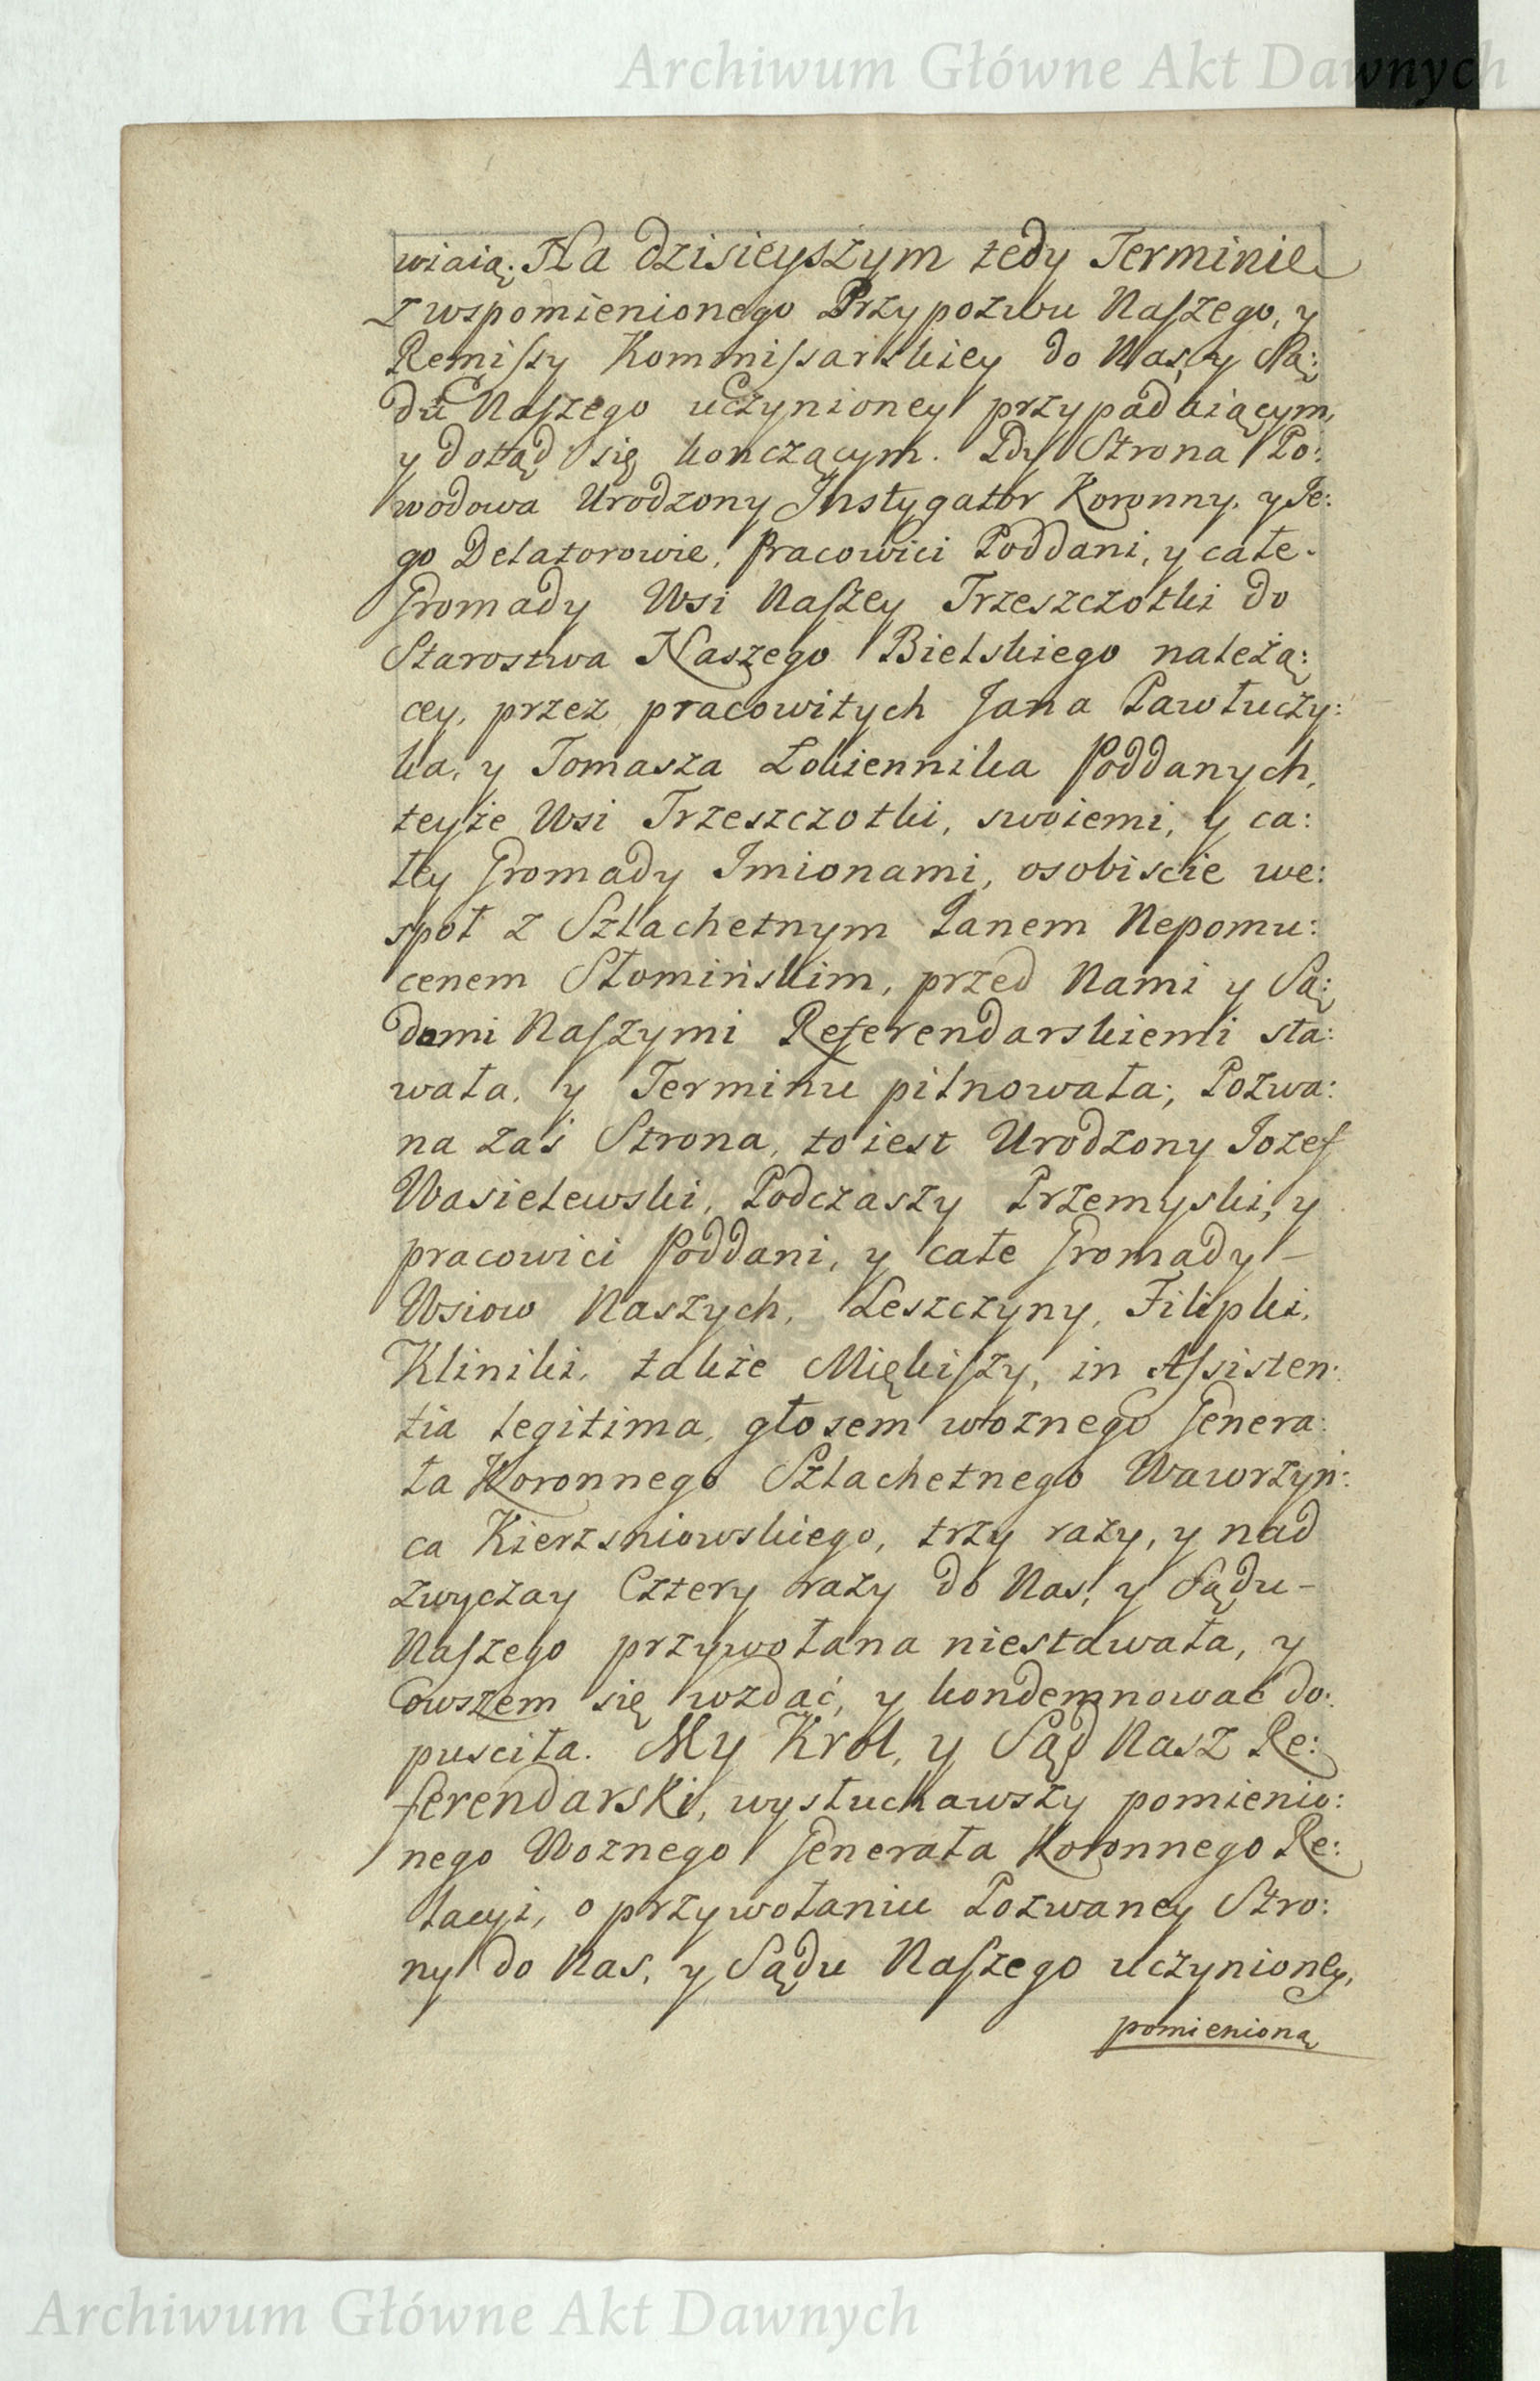 Archiwum Główne Akt Dawnych
wiaią. Na dzisieyszym tedy Terminie
z wspomienionego Przypozwu Naſzego, y
Remiſsy Kommiſsarskiey do Nas, y Są:
du Naſzego uczynioney przypadaiącym,
y dotąd się konczącym. Gdy Strona Po:
wodowa Urodzony Instygator Koronny, y Je:
go Delatorowie, Pracowici Poddani, y całe
Gromady Wsi Naſzey Trzeszczotki do
Starostwa Naszego Bielskiego należą:
cey, przez pracowitych Jana Pawłuczy:
ka, y Tomasza Łokiennika Poddanych,
teyże Wsi Trzeszczotki, swoiemi, y ca:
łey Gromady Imionami, osobiscie we:
społ z Szlachetnym Janem Nepomu:
cenem Słomińskim, przed Nami y Są:
dami Naſzymi Referendarskiemi sta:
wała, y Terminu pilnowała; Pozwa:
na zaś Strona, to iest Urodzony Jozef
Wasielewski, Podczaszy Przemyski, y
pracowici Poddani, y całe Gromady –
Wsiow Naszych, Leszczyny, Filipki,
Kliniki, także Miękiſzy, in Aſsisten:
tia legitima, głosem woznego Genera:
ła Koronnego Szlachetnego Wawrzyń:
ca Kierzsniowskiego, trzy razy, y nad
zwyczay Cztery razy do Nas, y Sądu –
Naſzego przywołana niestawała, y
owszem się wzdać, y kondemnować do:
pusciła. My Krol, y Sąd Nasz Re:
ferendarski, wysłuchawszy pomienio:
nego Woznego Generała Koronnego Re:
lacyi, o przywołaniu Pozwaney Stro:
ny do Nas, y Sądu Naſzego uczynioney,
pomienioną
Archiwum Główne Akt Dawnych